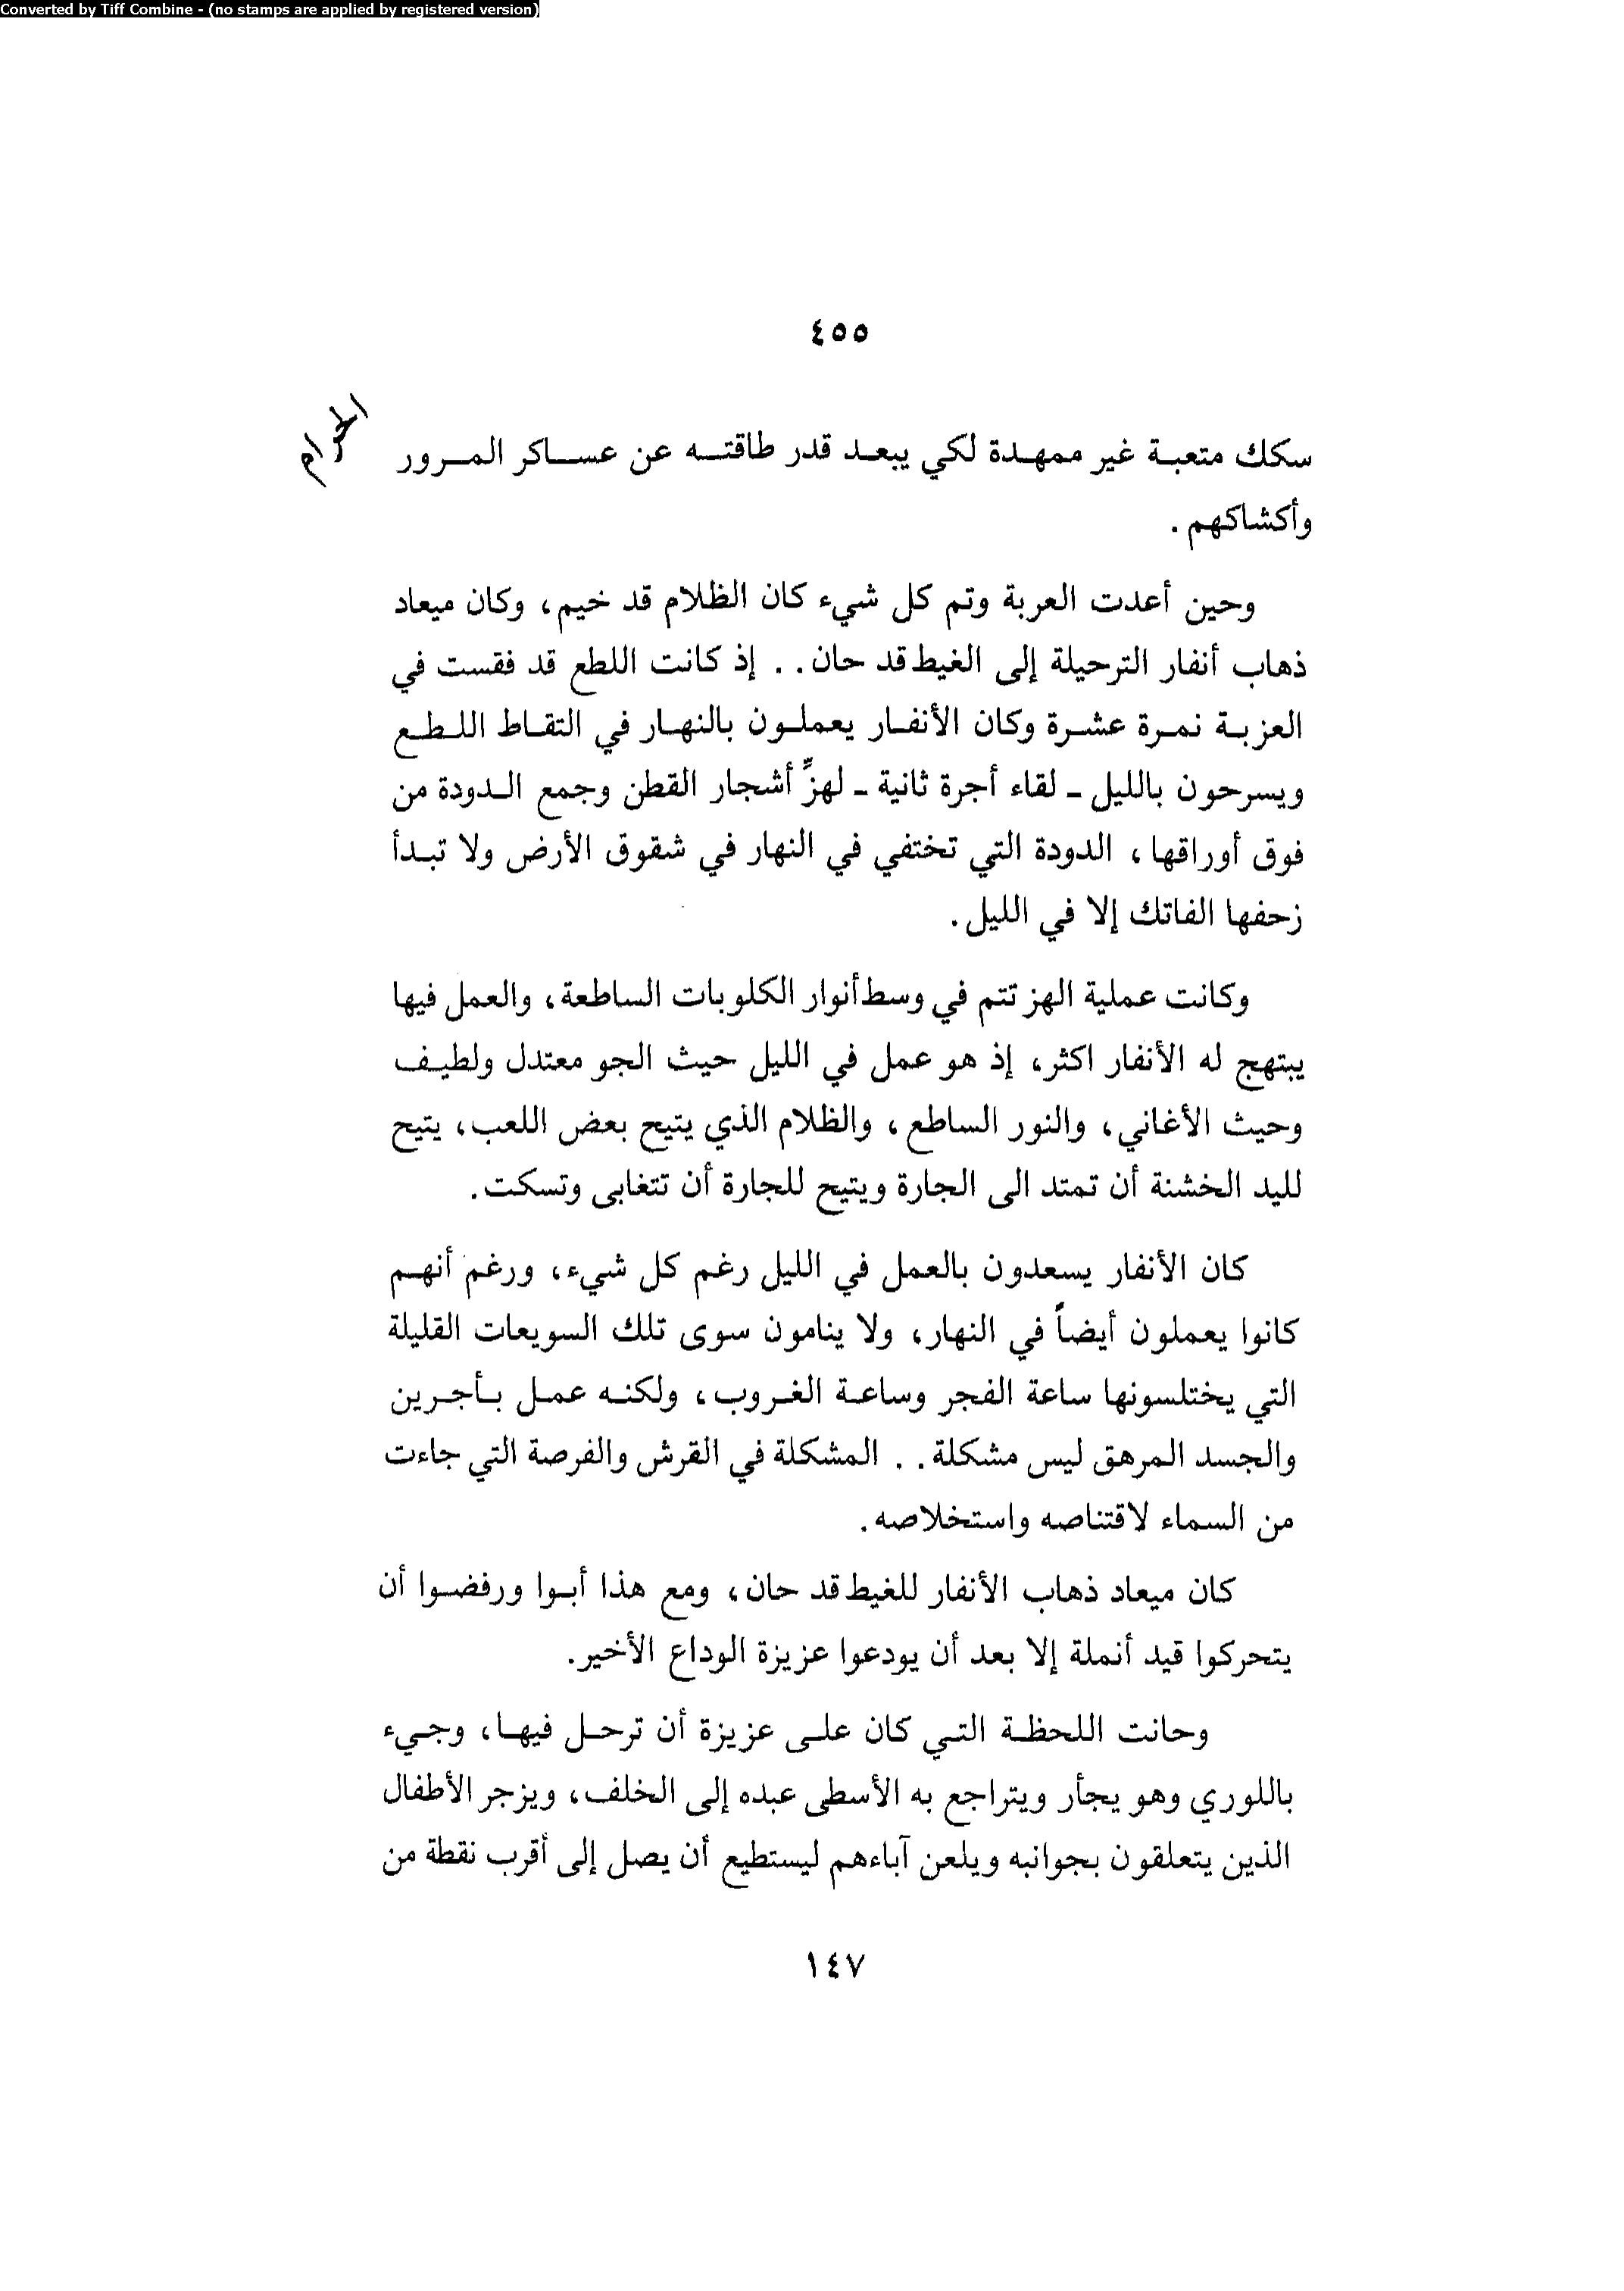 Converted by Tiff Combine - (no stamps are applied by registered version)
٤٥٥
الحرام
سكك متعبة غير ممهدة لكي يبعد قدر طاقته عن عساكر المرور
وأكشاكهم .
وحين أعدت العربة وتم كل شيء كان الظلام قد خيم، وكان ميعاد
ذهاب أنفار الترحيلة إلى الغيط قد حان . . إذ كانت اللطع قد فقست في
العزبة نمرة عشرة وكان الأنفار يعملون بالنهار في التقاط اللطع
ويسرحون بالليل ـ لقاء أجرة ثانية ـ لهزِّ أشجار القطن وجمع الدودة من
فوق أوراقها، الدودة التي تختفي في النهار في شقوق الأرض ولا تبدأ
زحفها الفاتك إلا في الليل.
وكانت عملية الهز تتم في وسط أنوار الكلوبات الساطعة، والعمل فيها
يبتهج له الأنفار اكثر، إذ هو عمل في الليل حيث الجو معتدل ولطيف
وحيث الأغاني، والنور الساطع، والظلام الذي يتيح بعض اللعب، يتيح
لليد الخشنة أن تمتد الى الجارة ويتيح للجارة أن تتغابى وتسكت.
كان الأنفار يسعدون بالعمل في الليل رغم كل شيء، ورغم أنهم
كانوا يعملون أيضاً في النهار، ولا ينامون سوى تلك السويعات القليلة
التي يختلسونها ساعة الفجر وساعة الغروب، ولكنه عمل بأجرين
والجسد المرهق ليس مشكلة . . المشكلة في القرش والفرصة التي جاءت
من السماء لاقتناصه واستخلاصه.
كان ميعاد ذهاب الأنفار للغيط قد حان، ومع هذا أبوا ورفضوا أن
يتحركوا قيد أنملة إلا بعد أن يودعوا عزيزة الوداع الأخير.
وحانت اللحظة التي كان على عزيزة أن ترحل فيها، وجيء
باللوري وهو يجأر ويتراجع به الأسطى عبده إلى الخلف، ويزجر الأطفال
الذين يتعلقون بجوانبه ويلعن آباءهم ليستطيع أن يصل إلى أقرب نقطة من
١٤٧